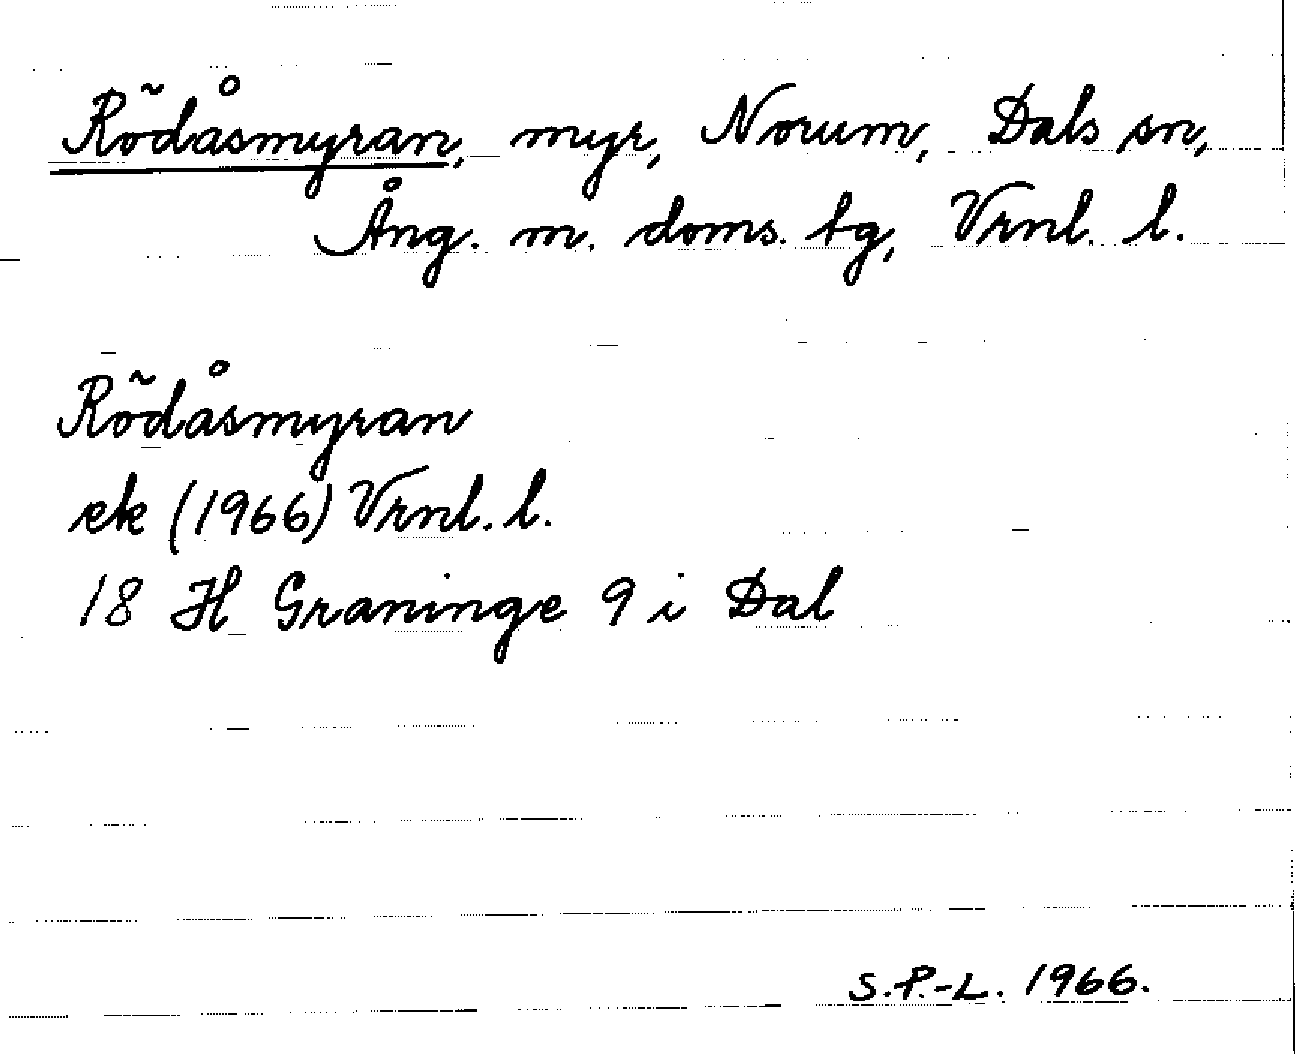 Rödåsmyran, myr, Norum, Dals sn,
Ång. m. doms. tg, Vrnl. l.
Rödåsmyran
ek (1966) Vrnl. l.
18 H Graninge 9 i Dal
S.P.-L. 1966.